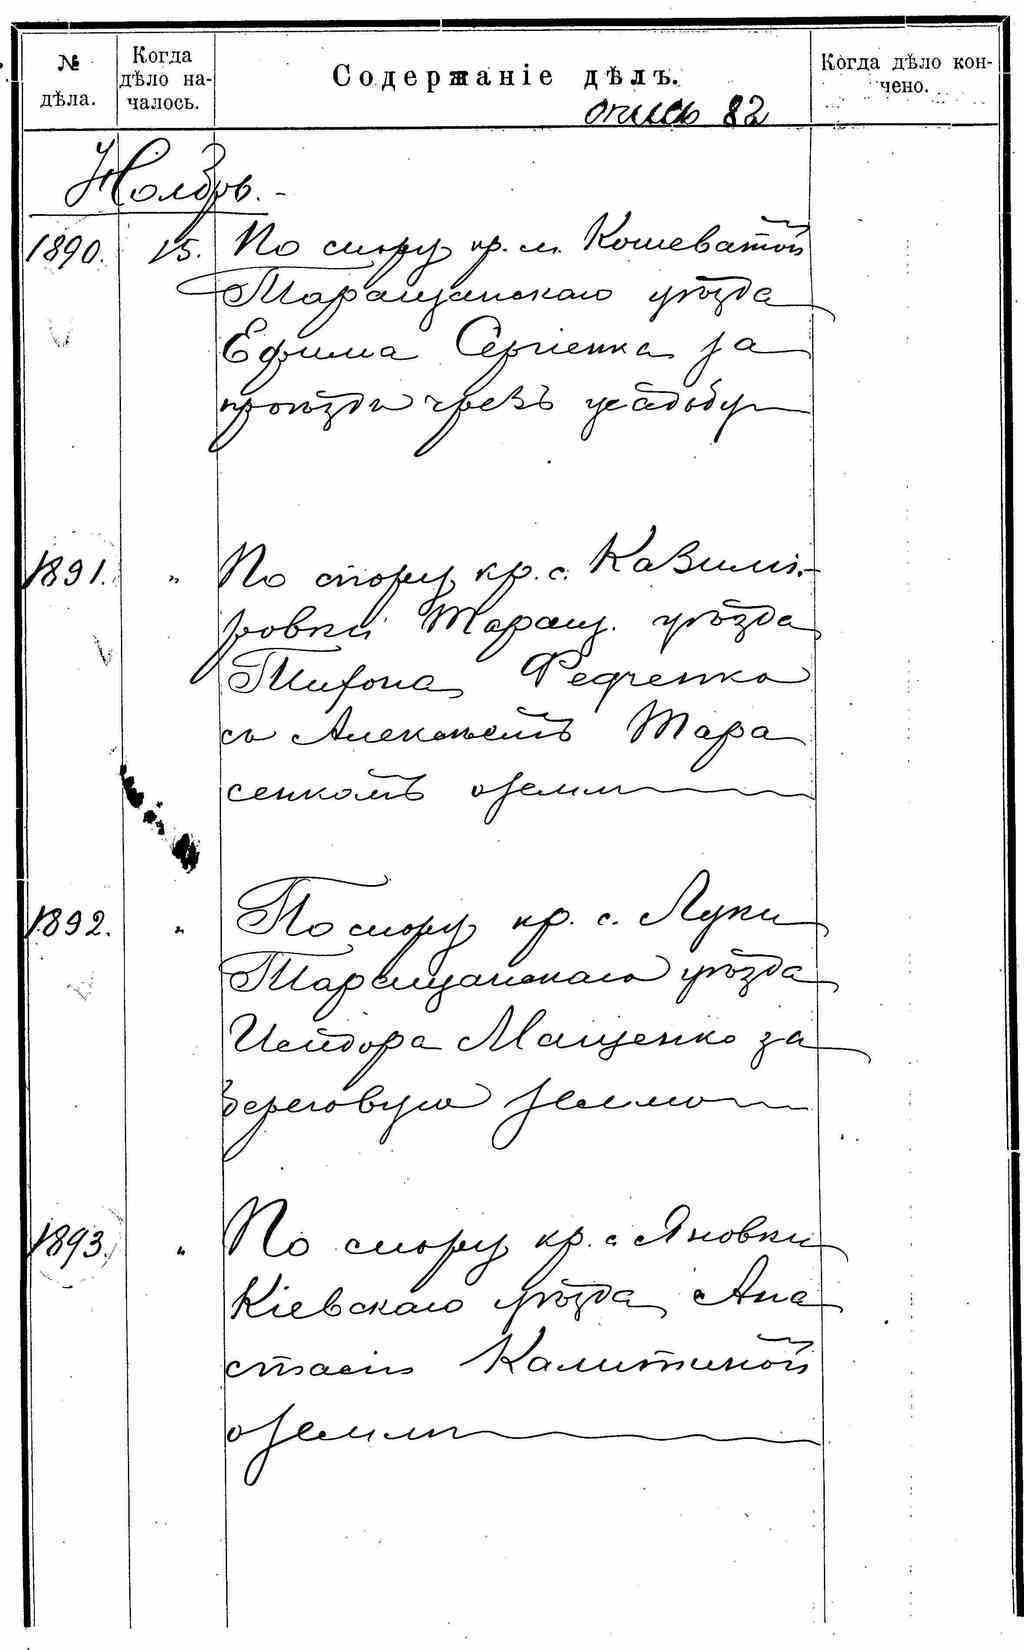 № дѣла.
Когда дѣло на-
чалось.
Содержаніе дѣлъ.
Когда дѣло кон-
чено.
опись 82
Ноябрь.
1890. 15. По спору кр. м. Кошеватой
Таращанскаго уѣзда
Ефима Сергіенка за
проѣздъ чрезъ усадьбу
1891. " По спору кр. с. Казими-
ровки Таращ. уѣзда
Тихона Федченка
съ Алексѣемъ Тара
сенкомъ о землѣ
1892. " По спору кр. с. Луки
Таращанскаго уѣзда
Исидора Мащенко за
береговую землю
1893. " По спору кр. с. Яновки
Кіевскаго уѣзда Ана
стасіи Калитиной
о землѣ